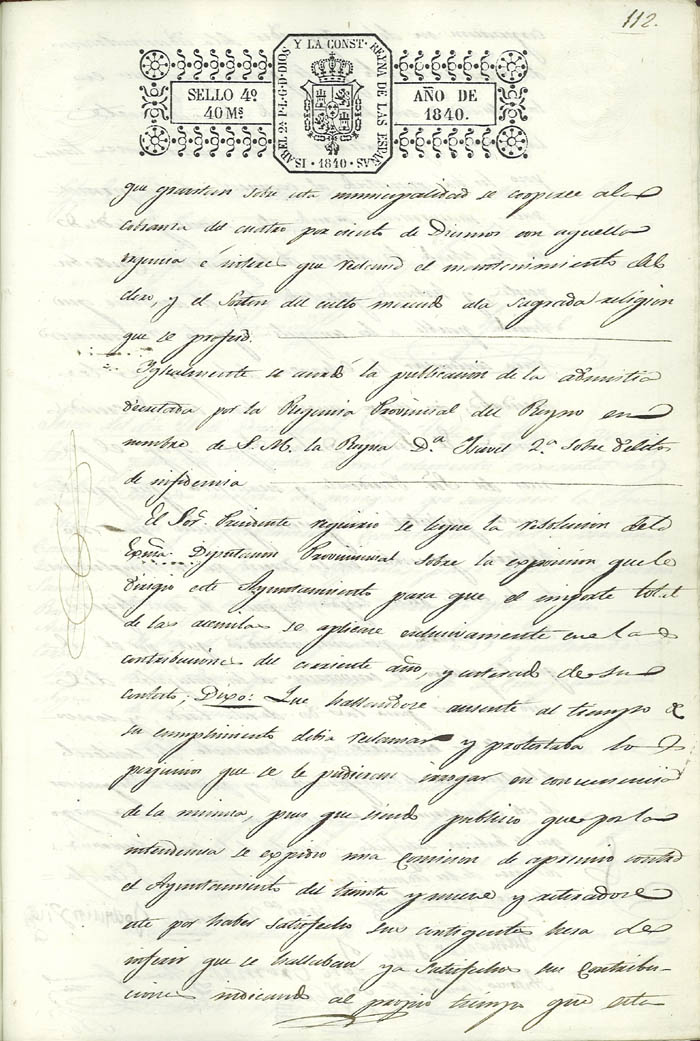 112.
ISABEL 2ª P. L. G. D. DIOS Y LA CONST. REYNA DE LAS ESPAÑAS · 1840 ·
SELLO 4º
40 Mˢ
AÑO DE
1840.
que gravitan sobre esta municipalidad se cooperace a la
cobranza del cuatro por ciento de Diezmos con aquella
urgencia é interes que reclama el mantenimiento del
clero, y el del culto a la sagrada religion
que se profesa.
Igualmente se la publicacion de la admistia
decretada por la Regencia Provincial del Reyno en
nombre de S. M. la Reyna D.ª Isavel 2.ª sobre delitos
de infidencia
El Sor. Presidente se leyese la resolucion de la
Exma Diputacion Provincial sobre la exposicion que le
dirigio este Ayuntamiento para que el importe total
de las se aplicase esclusivamente en las
contribuciones del corriente año, y enterado de su
contesto; Dixo: Que hallandose ausente al tiempo de
su cumplimiento debia reclamar y protestaba los
perjuicios que se le pudieran irrogar en consecuencia
de la misma, pues que siendo publico que por la
intendencia se expidio una comision de apremio contra
el Ayuntamiento del treinta y nueve y retirandose
este por haber satisfecho sus contigentes de
inferir que se hallaban ya satisfechas sus contribu-
ciones indicando al propio tiempo que esta